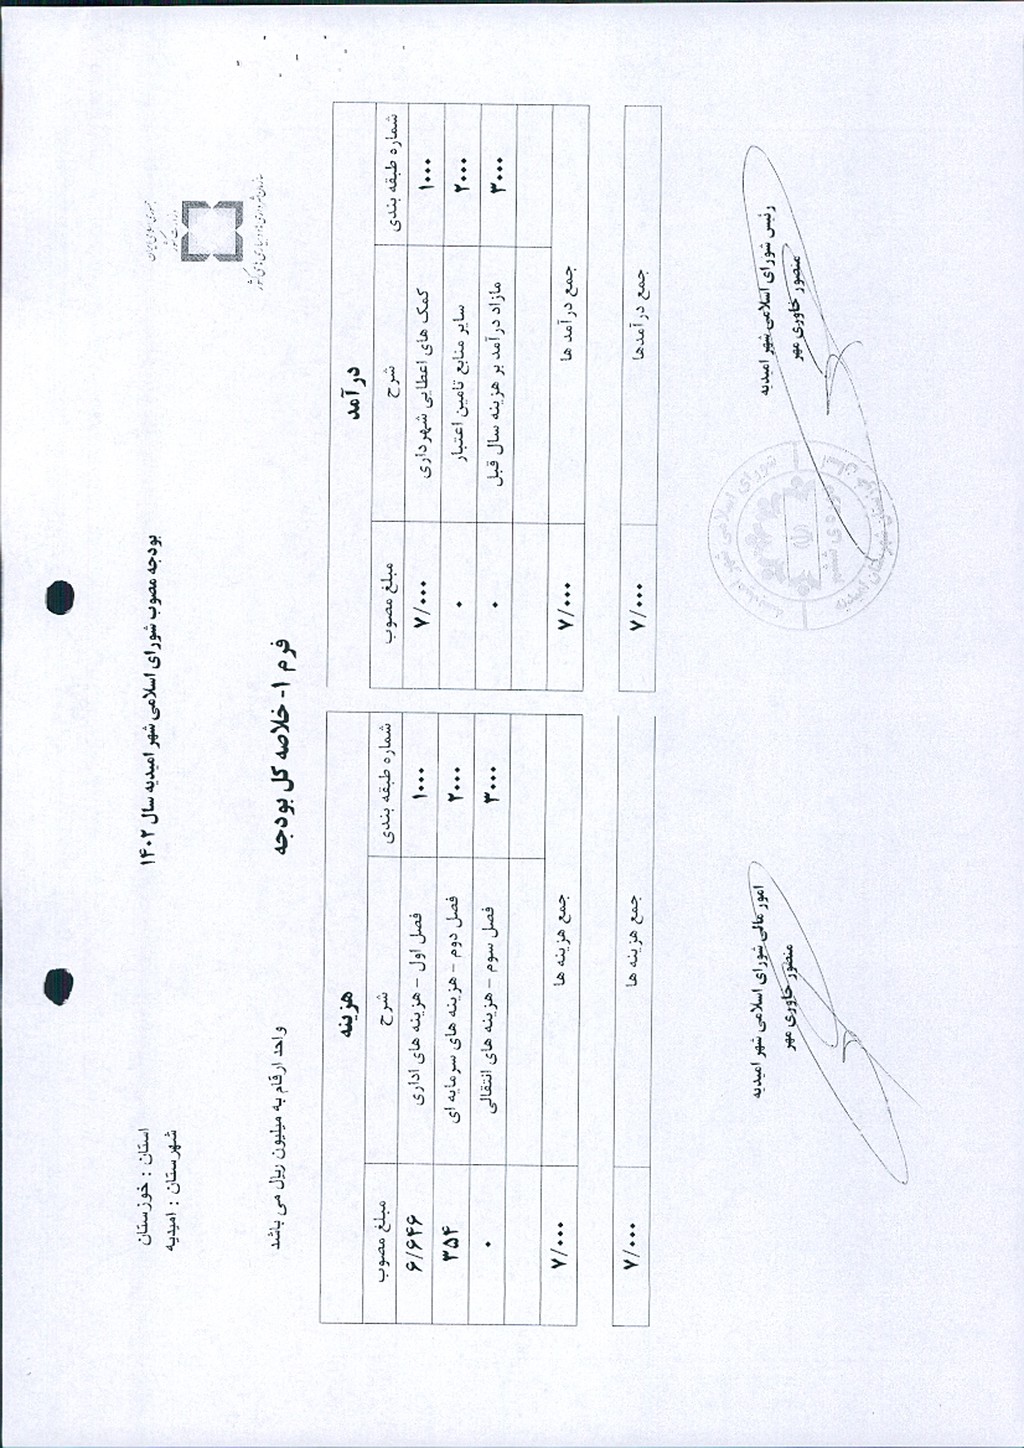 جمهوری اسلامی ایران
وزارت کشور
سازمان شهرداری ها و دهیاری های کشور
بودجه مصوب شورای اسلامی شهر امیدیه سال ۱۴۰۲
استان : خوزستان
شهرستان : امیدیه
فرم ۱- خلاصه کل بودجه
واحد ارقام به میلیون ریال می باشد
درآمد
شماره طبقه بندی شرح مبلغ مصوب
۱۰۰۰ کمک های اعطایی شهرداری ۷/۰۰۰
۲۰۰۰ سایر منابع تامین اعتبار ۰
۳۰۰۰ مازاد درآمد بر هزینه سال قبل ۰
جمع درآمد ها ۷/۰۰۰
جمع درآمدها ۷/۰۰۰
هزینه
شماره طبقه بندی شرح مبلغ مصوب
۱۰۰۰ فصل اول - هزینه های اداری ۶/۶۴۶
۲۰۰۰ فصل دوم - هزینه های سرمایه ای ۳۵۴
۳۰۰۰ فصل سوم - هزینه های انتقالی ۰
جمع هزینه ها ۷/۰۰۰
جمع هزینه ها ۷/۰۰۰
رئیس شورای اسلامی شهر امیدیه
منصور خاوری مهر
شورای اسلامی شهر امیدیه
دوره ی ششم
امور مالی شورای اسلامی شهر امیدیه
منصور خاوری مهر